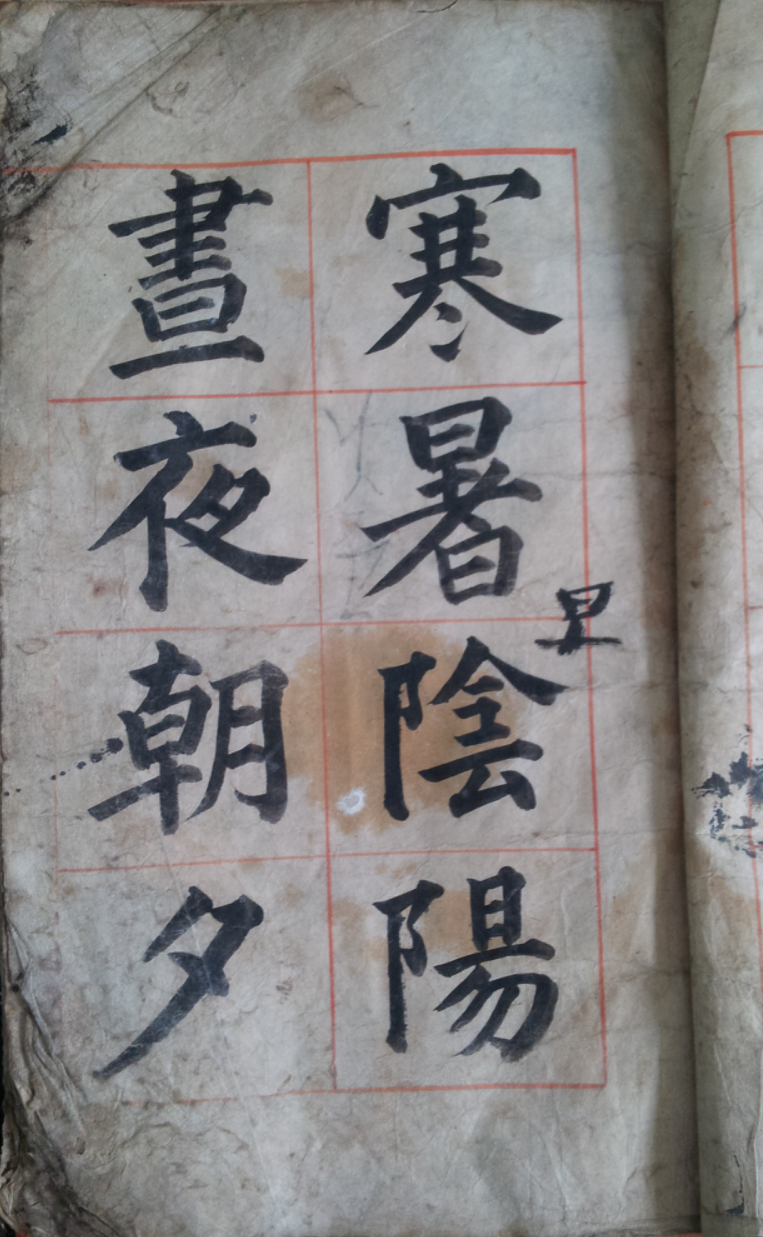 寒暑陰陽
晝夜朝夕